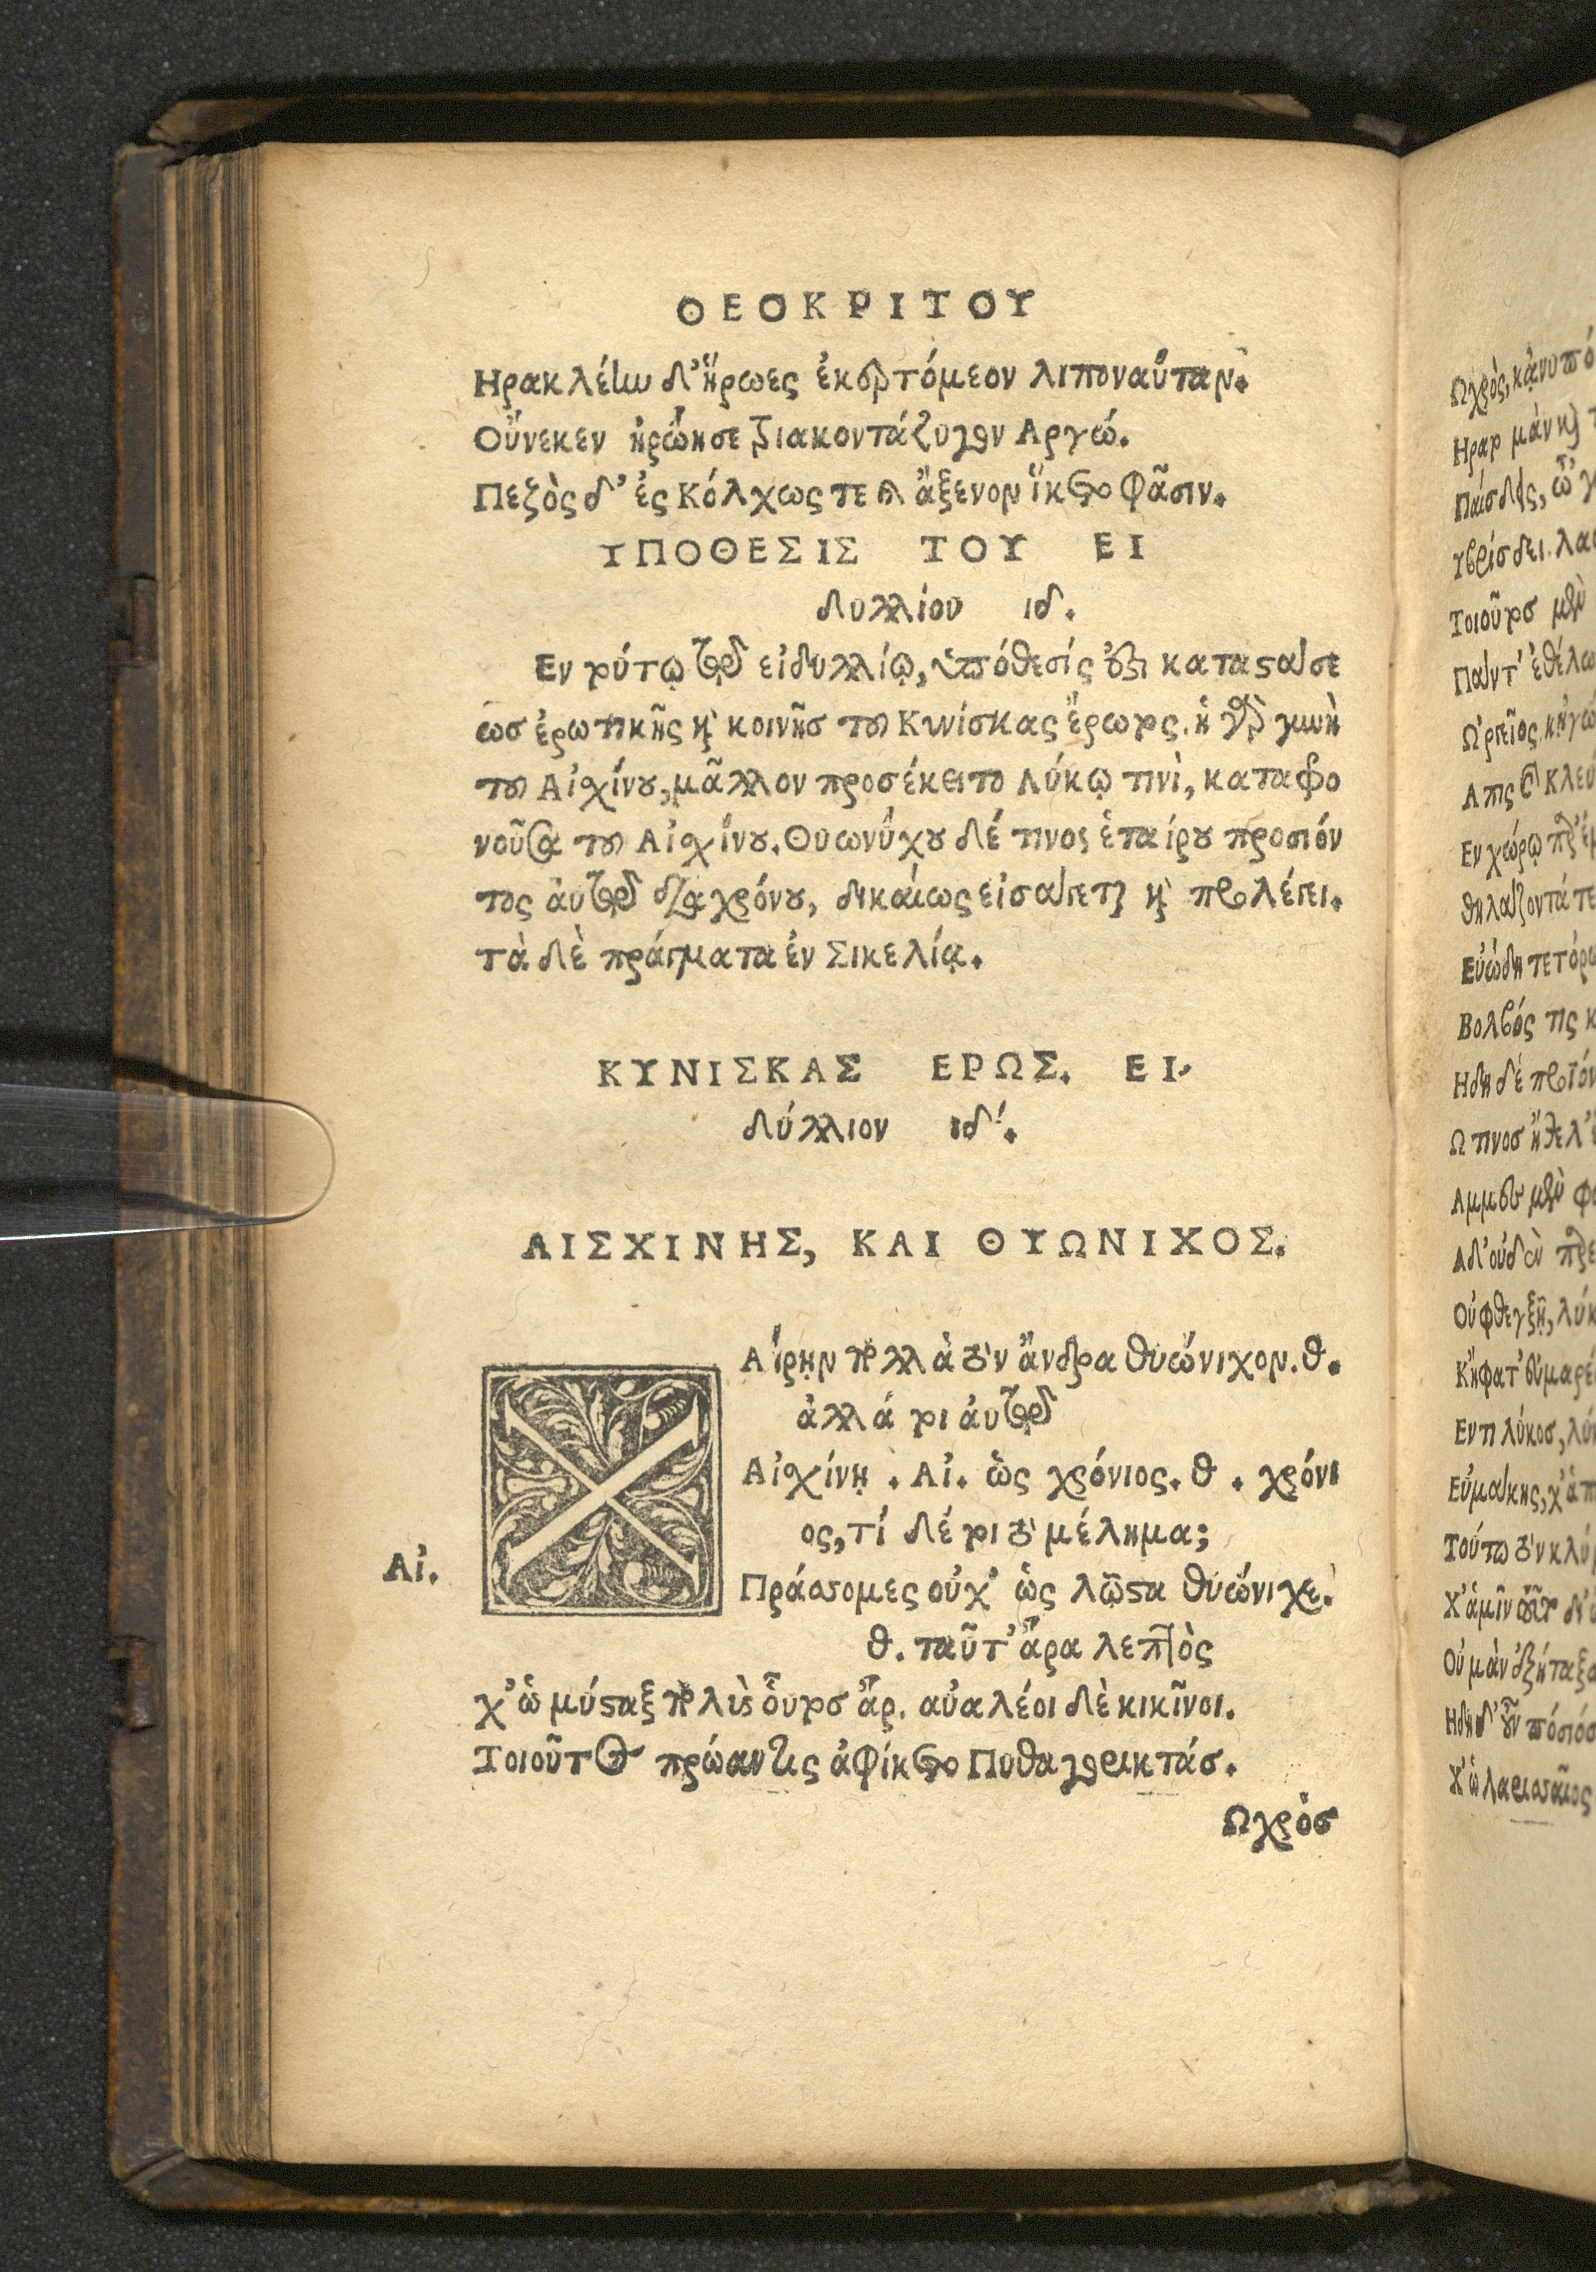 ΘΕΟΚΡΙΤΟΥ
Ηρακλέίω δ' ἥρωες ἐκερτόμεον λιποναύταν.
Οὕνεκεν ἠρώησε τριακοντάζυγον Αργώ.
Πεζὸς δ' ἐς Κόλχως τε καὶ ἄξενον ἵκετο Φᾶσιν.
ΥΠΟΘΕΣΙΣ ΤΟΥ ΕΙ
δυλλίου ιδ.
Εν τούτῳ τῷ εἰδυλλίῳ, ὑπόθεσίς ἐστι καταστάσε
ωσ ἐρωτικῆς καὶ κοινῆσ τοῦ Κυνίσκας ἔρωτος. ἡ γὰρ γυνὴ
τοῦ Αἰσχίνου, μᾶλλον προσέκειτο Λύκῳ τινὶ, καταφρο
νοῦσα τοῦ Αἰσχίνου. Θυωνύχου δέ τινος ἑταίρου προσιόν
τος ἀυτῷ διὰ χρόνου, δικαίως εἰσάπεται καὶ προλέπει.
τὰ δὲ πράγματα ἐν Σικελίᾳ.
ΚΥΝΙΣΚΑΣ ΕΡΩΣ. ΕΙ-
δύλλιον ιδ'.
ΑΙΣΧΙΝΗΣ, ΚΑΙ ΘΥΩΝΙΧΟΣ.
Χ
Αίρην πολλὰ τὸν ἄνδρα θυώνιχον. θ.
ἀλλά τοι ἀυτῷ
Αἰσχίνῃ. Αἰ. ὡς χρόνιος. θ. χρόνι
ος, τί δέ τοι τὸ μέλημα;
Αἰ. Πράσσομες οὐχ' ὡς λῷστα θυώνιχε.
θ. ταῦτ' ἄρα λεπτὸς
χ' ὡ μύσταξ πολὺς οὗτοσ ἄρ. αὐαλέοι δὲ κικῖνοι.
Τοιοῦτος πρώαν τις ἀφίκετο Πυθαγορικτάσ.
Ωχρὸσ